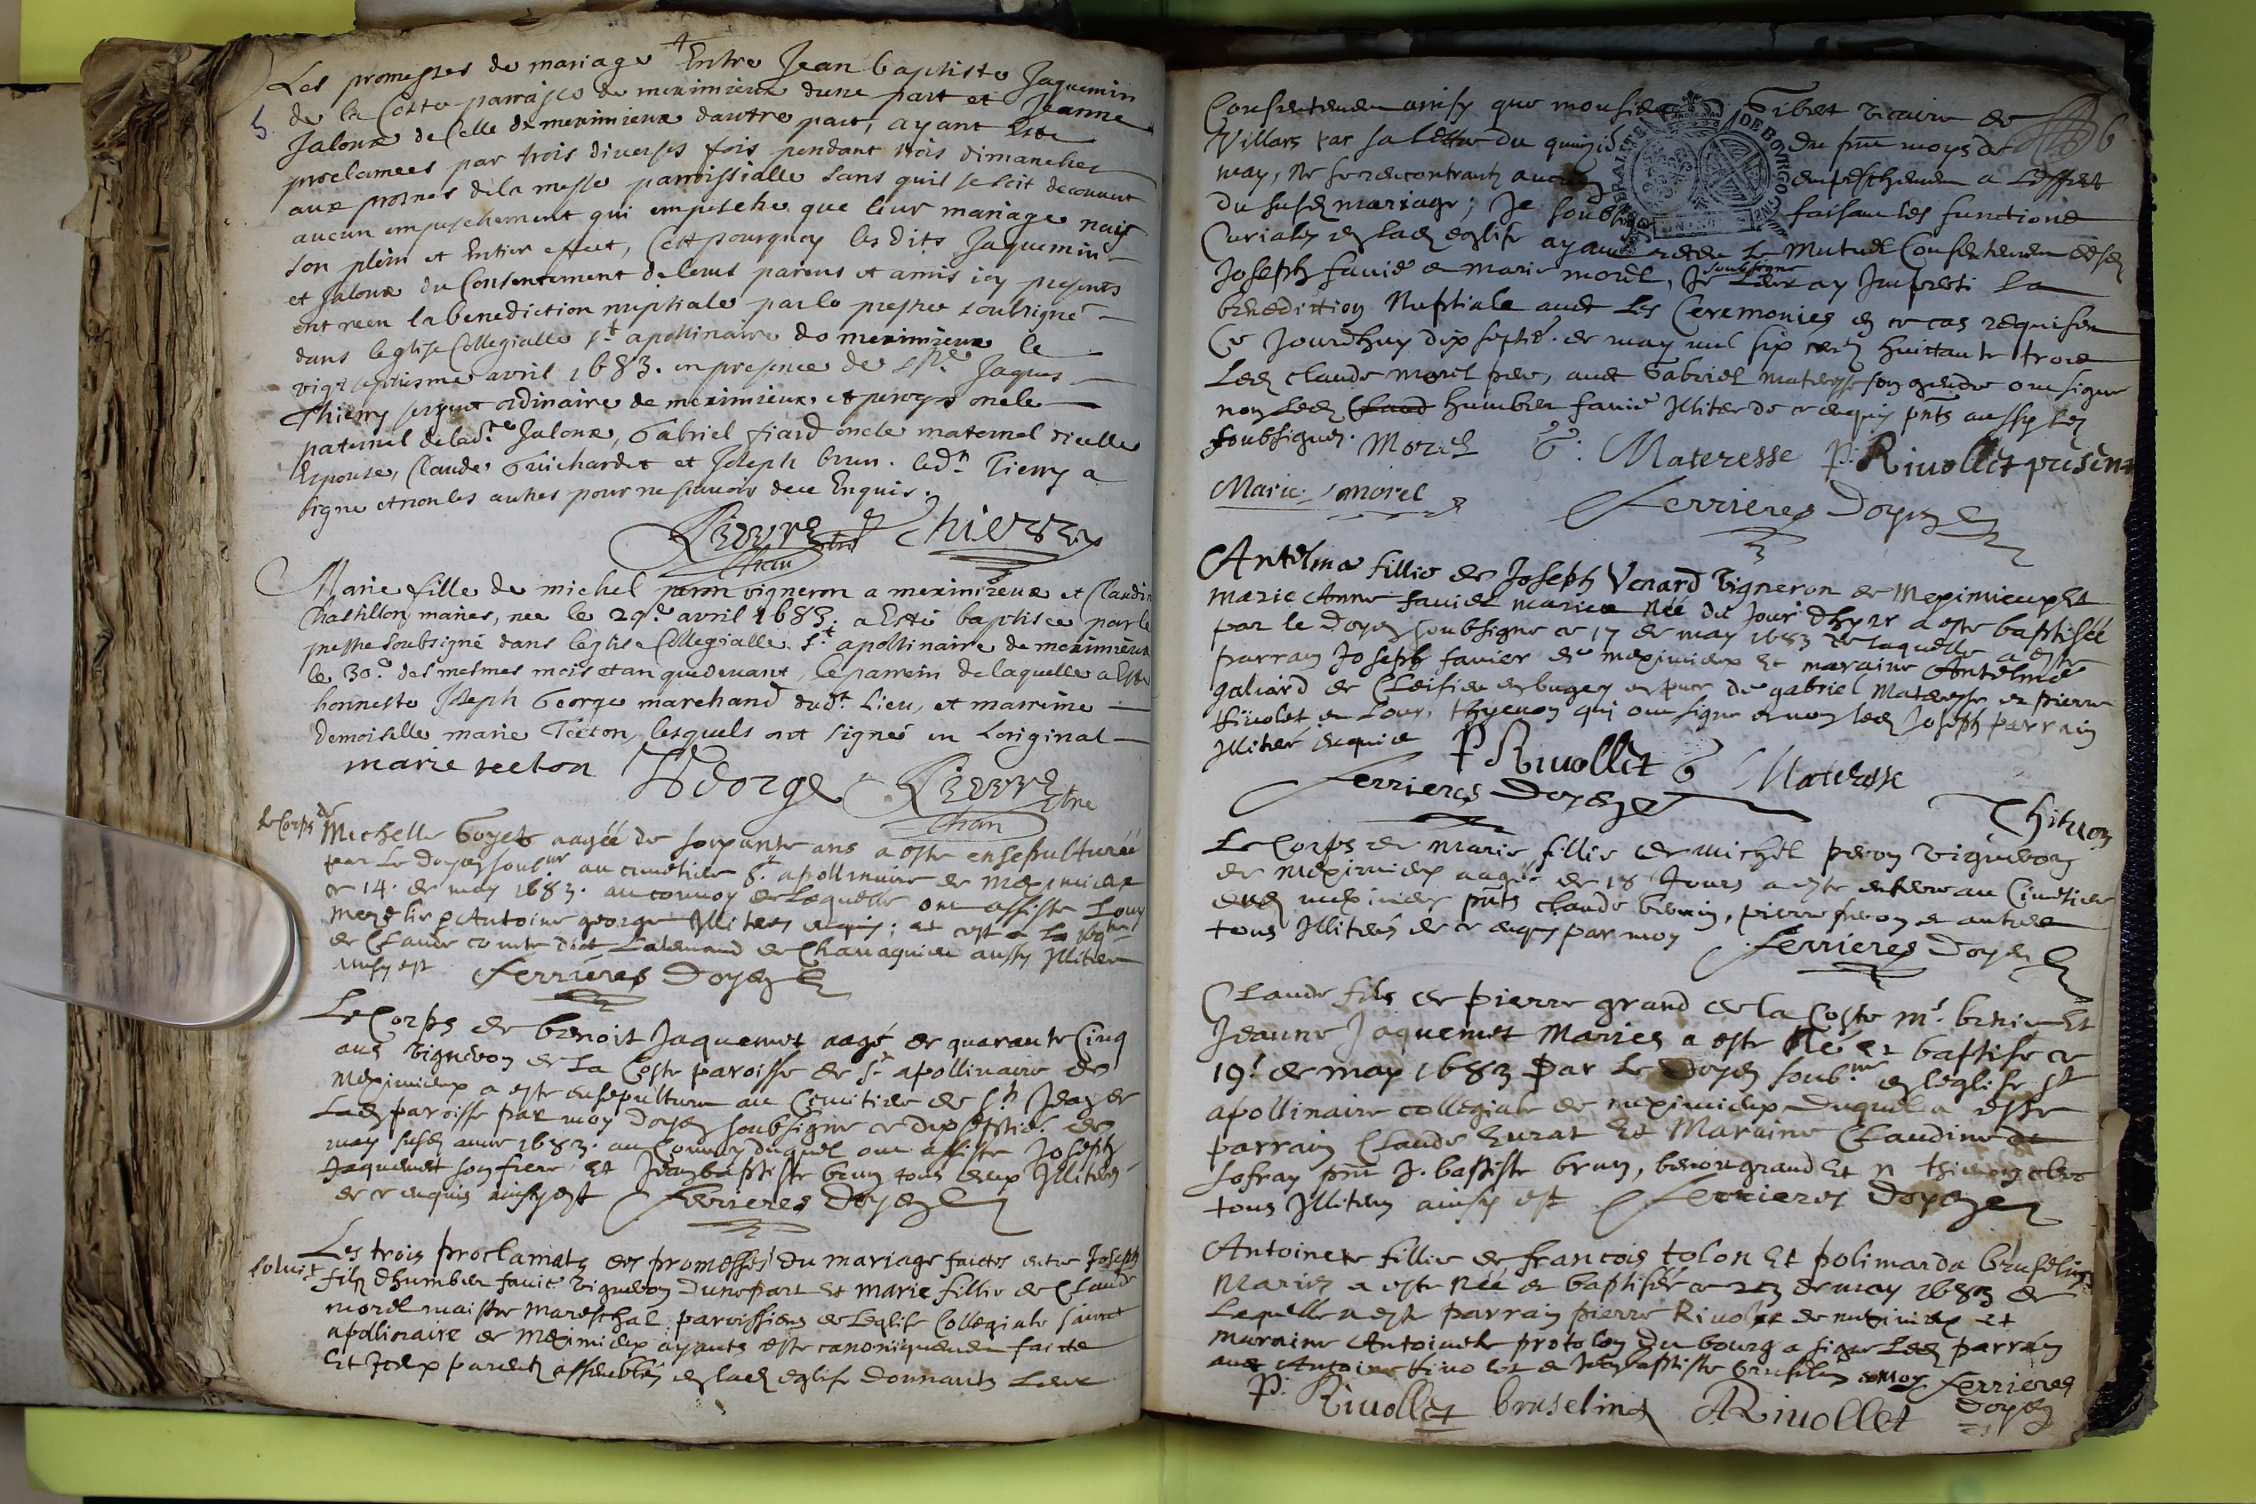 5.
Les promesses de mariage Entre Jean baptiste Jaquemin
de la Coste parroisse de meximieux dune part et Jeanne
Jaloux de Celle de meximieux dautre part, ayant Esté
proclamees par trois diverses fois pendant trois dimanches
aux prosnes de la messe parroissialle sans quil se soit decouvert
aucun empeschement qui empesche que leur mariage nait
son plein et Entier effect, Cest pourquoy les dits Jaquemin
et Jaloux du Consentement de leurs parens et amis icy presents
ont receu la benediction nuptiale par le prestre soubsigné
dans leglise Collegialle st apollinaire de meximieux le
vigt septiesme avril 1683. en presence de Jaques
Thierry sergent ordinaire de meximieux et oncle
paternel de ladte Jaloux, Gabriel fiard oncle maternel dicelle
Espouse, Claude Guichardet et Joseph brun. ledt Tierry a
signe et non les autres pour ne scavoir de ce Enquis.
Thierry
Marie fille de michel peron vigneron a meximieux et Claudine
Chastillon maries, nee le 29e avril 1683. a Esté baptisée par le
prestre soubsigné dans leglise Collegialle st apollinaire de meximieux
le 30e des mesmes mois et an que devant, le parrein de laquelle a Esté
honneste Joseph George marchand dudt. Lieu, et marreine
demoiselle marie Teeton, lesquels ont signés en Loriginal
marie teeton JGeorge
le Corps de
Michelle Goyet aagée de soixante ans a este ensepulturée
par Le doyen soubsné au cimetiere St apollinaire de Meximieux
ce 14. de may 1683. au convoy de Laquelle ont assiste Louy
Antoine george Illiteres enquis; et
de Claude comte dict Lalemand de Chavagnieu aussy Illitere
ainsy est Ferrieres Doyen
Le Corps de benoit Jaquemet aagé de quarante Cinq
ans vigneron de La Coste paroisse de St apollinaire de
Meximieux a este ensepulturé au Cimitiere de St Jean de
Lad paroisse par moy doyen soubsigne ce dix septie. de
may susd annee 1683. au Convoy duquel ont assiste Joseph
Jaquemet son frere Et Jean baptiste brun tous deux Illiteres
de ce enquis ainsy est Ferrieres Doyen
soluit
Les trois proclamats des promesses du mariage faictes entre Joseph
fils dhumbert favié vigneron Dune part Et Marie fillie de Claude
morel maistre mareschal paroissiens de Leglise Collegiale sainct
apollinaire de Meximieux ayants este canoniquement faicte
Et Iceux parents assemblés en lad eglise donnants Leur
6
Consentement ainsy que monsieur Gibet vicaire de
Villars par sa Lettre du quinzie du pnt moys de
may, Ne se rencontrant aucun empeschement a Leffect
du susd mariage; Je soubsigne faisant les functions
Curiales en lad eglise ayant receu Le Mutuel Consentement desd
Joseph favié et marie morel, Je soubsigne Leur ay Imparti La
benediction Nuptiale avec Les Ceremonies en ce cas requises
Ce Jourdhuy dix septie. de may mil six cent huittante trois
Led Claude morel pere, avec Gabriel materesse son gendre ont signe
non Led Claud humbert favié Illitere de ce enquis pnts aussy les
soubsignes. Morel G. Materesse P. Rivollet present
Marie morel Ferrieres Doyen
Antelma fillie de Joseph Venard Vigneron de Meximieux Et
Marie Anne Favier mariés Née du Jour dhyer a este baptisée
par le Doyen soubsigne ce 17 de may 1683 de laquelle a este
parrain Joseph favier de meximieux Et maraine Antelme
galiard de Cleisieu en bugey en pnce de gabriel Materesse et pierre
Rivolet et Lour. Thyvenon qui ont signe et non led Joseph parrain
Illiteré enquis P Rivollet G Materesse
Ferrieres Doyen Thivenon
Le Corps de Marie fillie de michel peron vigneron
de meximieux aagée de 18 Jours a este enterre au Cimetiere
dud meximieux pnts Claude brunin, pierre peron et autres
tous Illiterés de ce enqs par moy Ferrieres Doyen
Claude fils de pierre grand de la Coste Et
Jeanne Jaquemet Maries a este Né Et baptise ce
19e de may 1683 par Le Doyen soub.né en leglise St
apollinaire collegiale de meximieux Duquel a este
parrain Claude Eurat Et Maraine Claudine de
Lofray pnt J. baptiste brun, benoit grand Et
tous Illiteres ainsy est Ferrieres Doyen
Antoinete fillie de francois tolon Et polimarda bruselin
Maries a este Née et baptisée ce 23 de may 1683 de
Laquelle a este parrain pierre Rivolet de meximieux et
maraine Antoinete protolon Du bourg a signe Led parrain
avec Antoine Rivolet et Jean baptiste bruselin et moy Ferrieres
P. Rivollet bruselin ARivollet Doyen